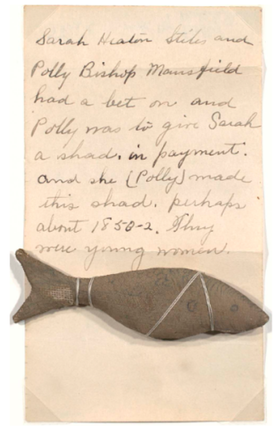 Sarah Heaton Stiles and
Polly Bishop Mansfield
had a bet on and
Polly was to give Sarah
a shad. in payment.
and she (Polly) made
this shad. perhaps
about 1850-2. They
were young women.